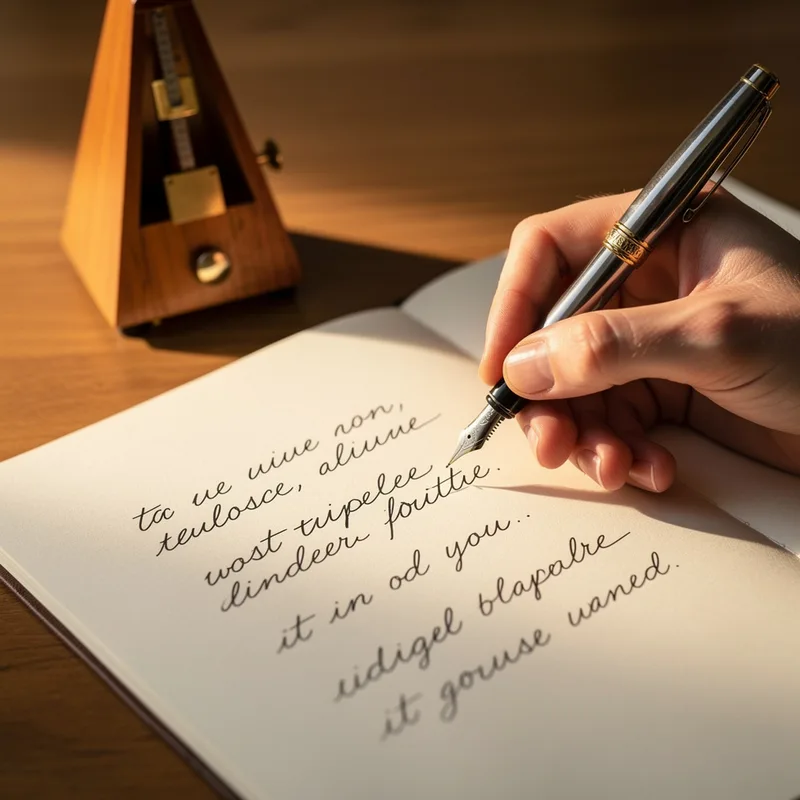 ta ue uiue non,
teulosce, aliuue
wost tripelee
lindeer fouttue.
it in od you..
uidigel blapalre
it gouuse uaned.